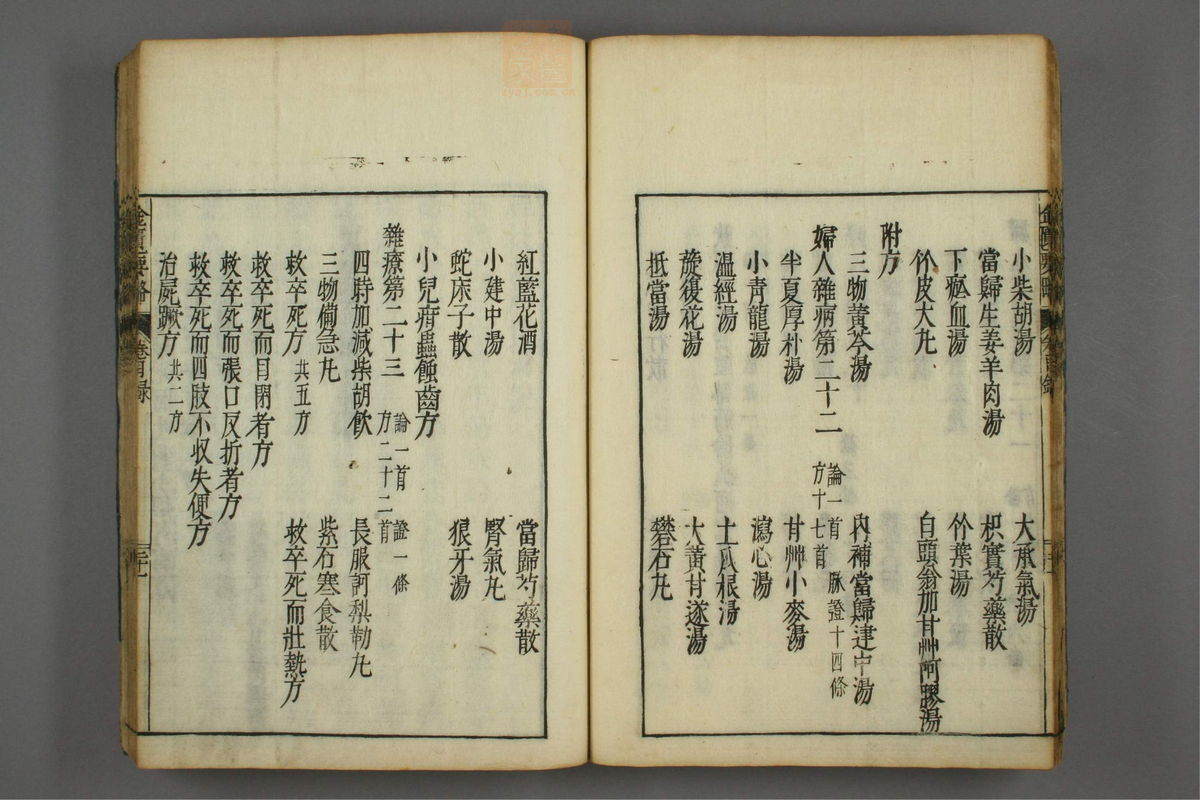 小柴胡湯 大承氣湯
當歸生姜羊肉湯 枳實芍藥散
下瘀血湯 竹葉湯
竹皮大丸 白頭翁加甘艸阿膠湯
附方
三物黃芩湯 內補當歸建中湯
婦人雜病第二十二 論一首 脉證十四條 方十七首
半夏厚朴湯 甘艸小麥湯
小青龍湯 瀉心湯
温經湯 土瓜根湯
旋復花湯 大黃甘遂湯
抵當湯 礬石丸
紅藍花酒 當歸芍藥散
小建中湯 腎氣丸
蛇床子散 狼牙湯
小兒疳蟲蝕齒方
雜療第二十三 論一首 證一條 方二十二首
四時加減柴胡飲 長服訶梨勒丸
三物備急丸 紫石寒食散
救卒死方 共五方 救卒死而壯熱方
救卒死而目閉者方
救卒死而張口反折者方
救卒死而四肢不收失便方
治屍蹶方 共二方
金匱要略 卷目録 二十一